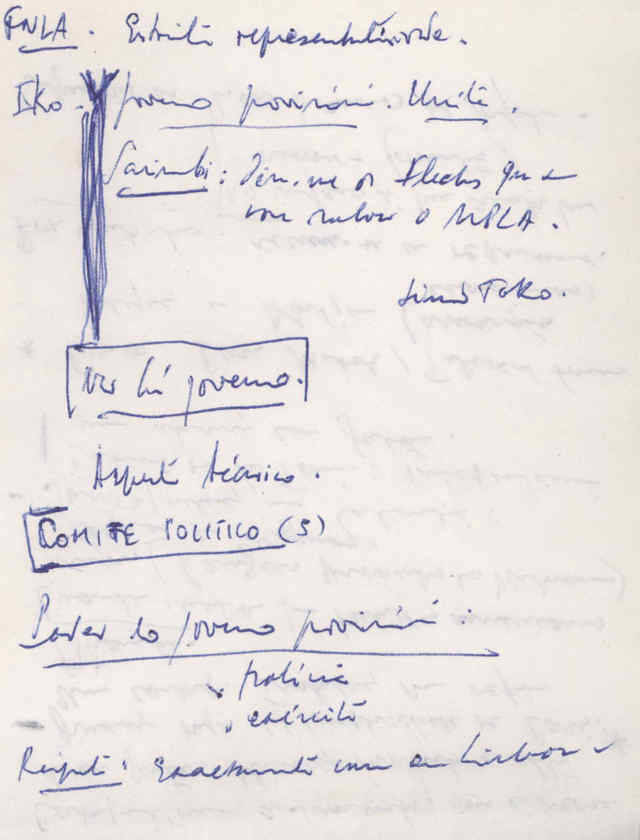 FNLA. Estrita representatividade.
Eko. Governo provisório. Unita.
Savimbi: diz-se os Flechas que
com o MPLA.
Simão Toko.
Não há governo.
Aspecto técnico.
COMITE POLITICO (5)
Poder do governo provisório:
. polícia
. exército
Exactamente como em Lisboa